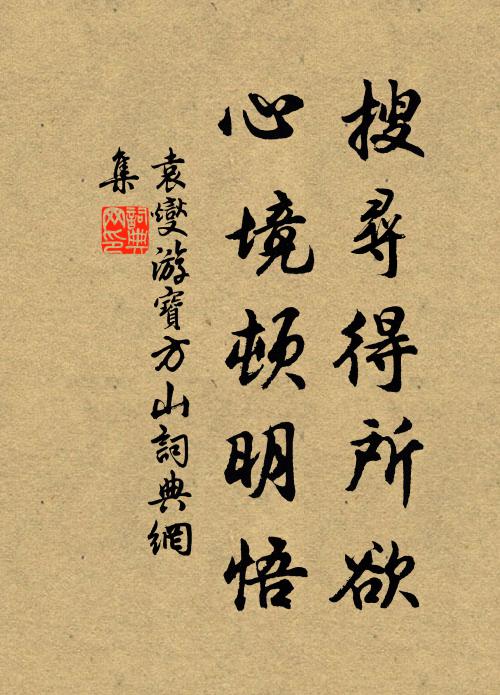 搜尋得所欲
心境頓明悟
袁燮游寶方山詞典網
集
詞典
网印